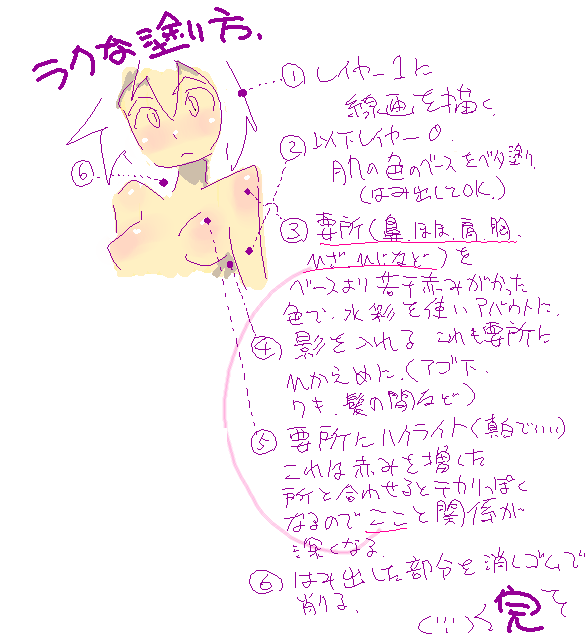 ラクな塗り方.
① レイヤー1に
線画を描く
② 以下レイヤー0.
肌の色のベースをベタ塗り.
(はみ出してOK.)
③ 要所(鼻.ほほ.肩.胸.
ひざ.ひじなど)を
ベースより若干赤みがかった
色で、水彩を使いアバウトに.
④ 影を入れる これも要所に
ひかえめに.(アゴ下.
ワキ.髪の間など)
⑤ 要所にハイライト(真白でいい)
これは赤みを増した
所と合わせるとテカりっぽく
なるのでここと関係が
深くなる.
⑥ はみ出した部分を消しゴムで
削る.
完
⑥